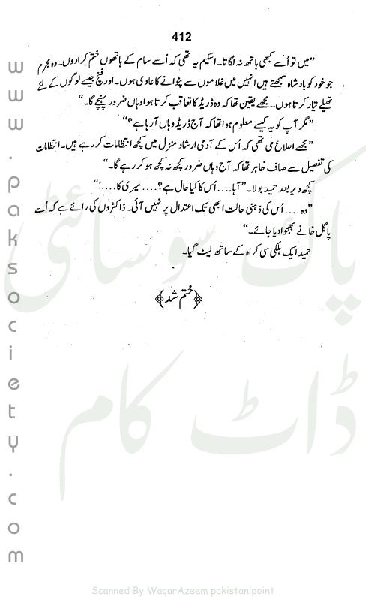 412
"میں تو اُسے کبھی ہاتھ نہ لگاتا۔ اسکیم یہ تھی کہ اُسے سام کے ہاتھوں ختم کرا دوں۔ وہ مجرم
جو خود کو بادشاہ سمجھتے ہیں انہیں میں غلاموں سے پٹوانے کا عادی ہوں۔ اور فنچ جیسے لوگوں کے لئے
تھپلے تیار کرتا ہوں۔ مجھے یقین تھا کہ وہ ڈریڈ کا تعاقب کرتا ہوا وہاں ضرور پہنچے گا۔"
"مگر آپ کو یہ کیسے معلوم ہوا تھا کہ آج ڈریڈ وہاں آ رہا ہے؟"
"مجھے اطلاع ملی تھی کہ اُس کے آدمی ارشاد منزل میں کچھ انتظامات کر رہے ہیں۔ انتظامات
کی تفصیل سے صاف ظاہر تھا کہ آج وہاں ضرور کچھ نہ کچھ ہو کر رہے گا۔"
کچھ دیر بعد حمید بولا۔ "آہا.... اُس کا کیا حال ہے؟.... سیری کا....."
"وہ.... اُس کی ذہنی حالت ابھی تک اعتدال پر نہیں آئی۔ ڈاکٹروں کی رائے ہے کہ اُسے
پاگل خانے بھجوا دیا جائے۔"
حمید ایک ہلکی سی کراہ کے ساتھ لیٹ گیا۔
﴿ختم شد﴾
پاک سوسائٹی
ڈاٹ کام
www.paksociety.com
Scanned By WaqarAzeem pakistanipoint